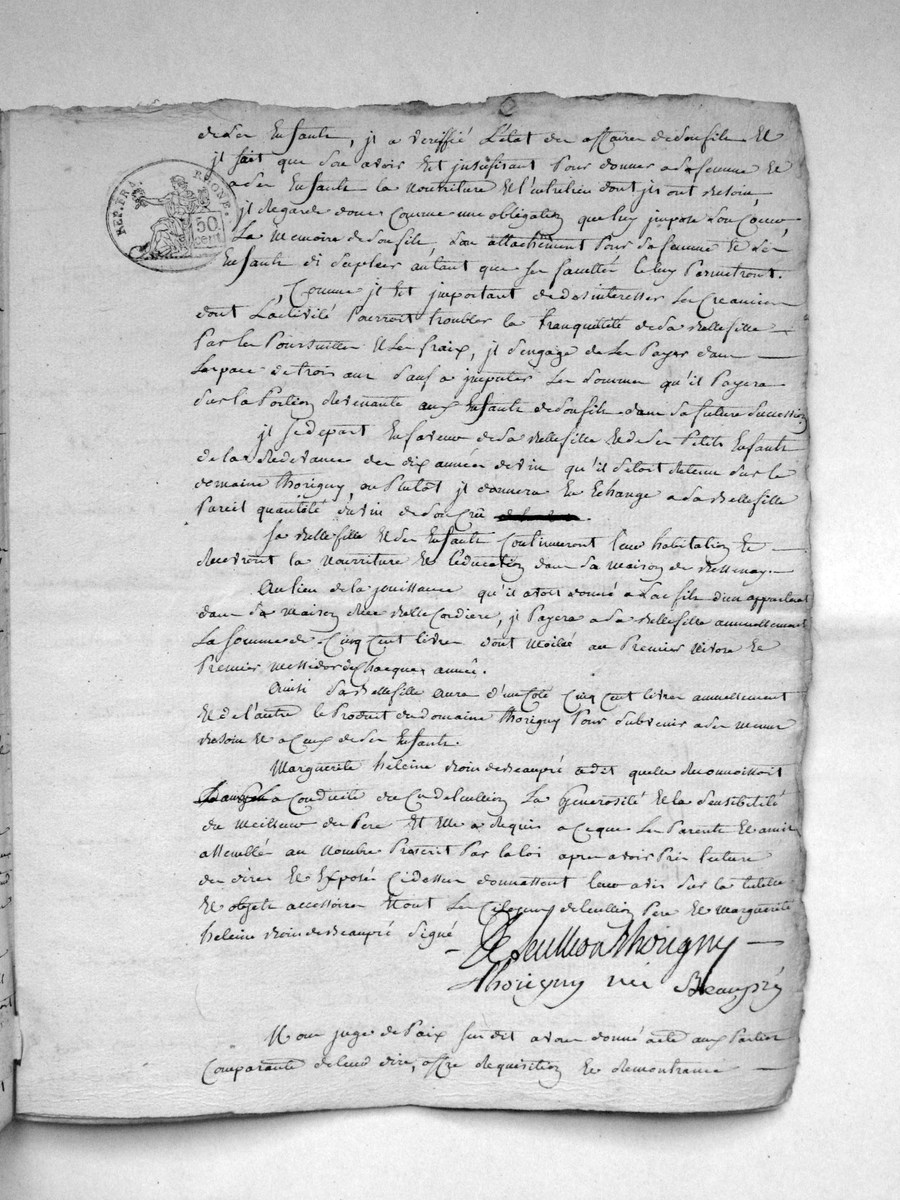 de Ses Enfants, jl a veriffié l'état des affaires de Son fils Et
jl sait que Son avoir Est jnsufisant pour donner a Sa femme Et
a Ses Enfants la nourriture Et l'entretien dont jls ont Besoin,
jl Regarde donc Comme une obligation que luy jmpose Son Cœur,
REP. FRA. RHONE.
50 cent.
La Memoire de Son fils, Son attachement pour Sa femme Et Ses
Enfants de Supleer autant que Ses facultés le luy Permetront.
Comme jl Est jmportant de desinteresser les Creanciers
dont L'activité Pourroit troubler la tranquilité de Sa Bellefille
Par les Poursuittes Et Les fraix, jl S'engage de Les Payer dans
L'espace de trois ans Sauf a jmputer Les Sommes qu'il Payera
Sur la Portion Revenante aux Enfants de Son fils dans Sa future Succession
jl Se depart En faveur de Sa Bellefille Et de Ses Petits Enfants
de la Redevance des dix années de vin qu'il S'etoit Retenue Sur le
domaine thorigny, ou Plutot jl donnera En Echange a Sa Bellefille
Pareil quantité du vin de Son Crû
Sa Bellefille Et Ses Enfants Continueront leur habitation Et
Recevront la Nourriture Et L'education dans Sa Maison de Bessenay.
Au lieu de la jouissance qu'il avoit donné a Son fils d'un appartement
dans Sa Maison Rue Belle Cordiere, jl Payera a Sa Bellefille annuellement
La Somme de Cinq Cent livres dont Moitié au Premier Nivose Et
Premier Messidor de Chacque année.
Ainsi Sa Bellefille aura d'un Coté Cinq Cent livres annuellement
Et de l'autre le Produit du domaine thorigny Pour Subvenir a Ses Menus
Besoins Et a Ceux de Ses Enfants.
Marguerite heleine Broin de Beaupré a dit quelle Reconnoissoit
a la Conduite du Cen de Leullion La Generosité Et la Sensibilité
du Meilleur des Peres Et Elle a Requis a Ceque Les Parents Et amis
assemblés au Nombre Prescrit Par la loi apres avoir Pris lecture
des dires Et Exposés Cidessus donnassent leur avis Sur la tutelle
Et objets accessoires Et ont Les Citoyens de Leullion Pere Et Marguerite
heleine Broin de Beaupré Signé
De Leullion Thorigny
Thorigny née Beaupré
Nous juge de Paix Susdit avons donné acte aux Parties
Comparantes de leurs dires, offre Requisition Et Remontrance